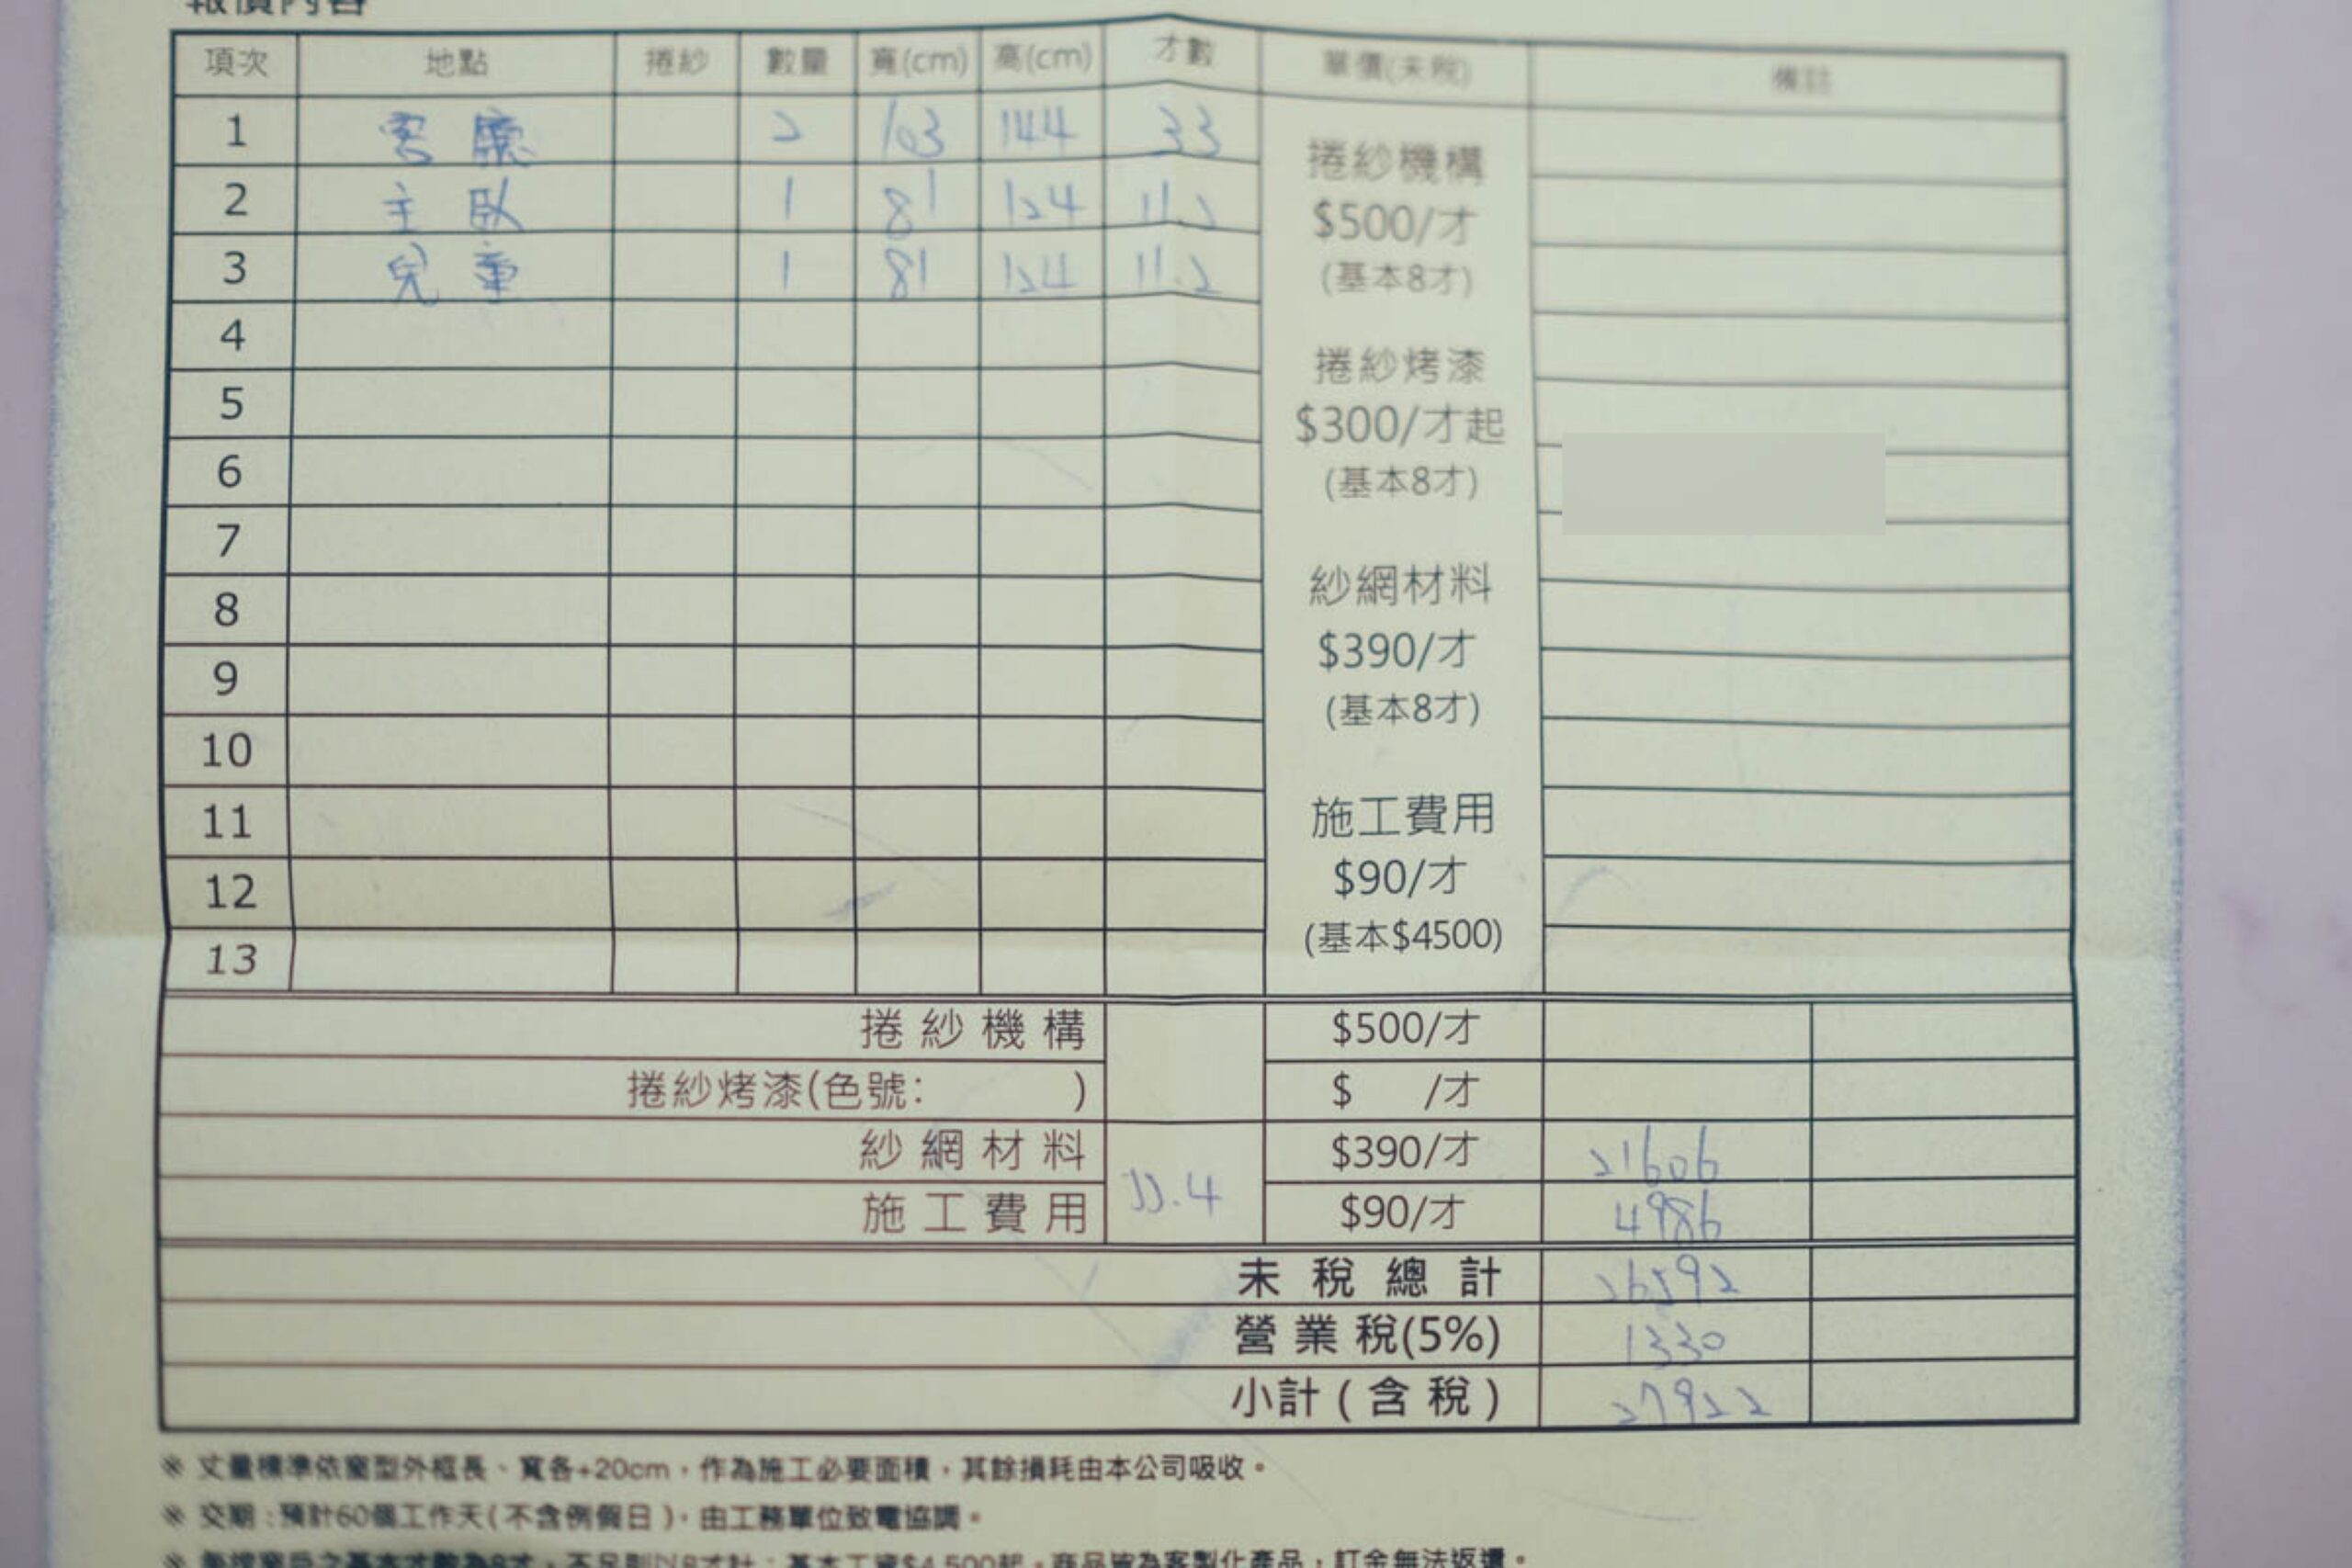 報價內容
項次 地點 捲紗 數量 寬(cm) 高(cm) 才數 單價(未稅) 備註
1 客廳 2 103 144 33
2 主臥 1 81 124 11.2
3 兒童 1 81 124 11.2
4
5
6
7
8
9
10
11
12
13
捲紗機構
$500/才
(基本8才)
捲紗烤漆
$300/才起
(基本8才)
紗網材料
$390/才
(基本8才)
施工費用
$90/才
(基本$4500)
捲紗機構 $500/才
捲紗烤漆(色號: ) $ /才
紗網材料 55.4 $390/才 21606
施工費用 $90/才 4986
未稅總計 26592
營業稅(5%) 1330
小計(含稅) 27922
※ 丈量標準依窗型外框長、寬各+20cm，作為施工必要面積，其餘損耗由本公司吸收。
※ 交期：預計60個工作天(不含例假日)，由工務單位致電協調。
※ 每樘窗戶之基本才數為8才，不足則以8才計；基本工資$4,500起。商品皆為客製化產品，訂金無法返還。